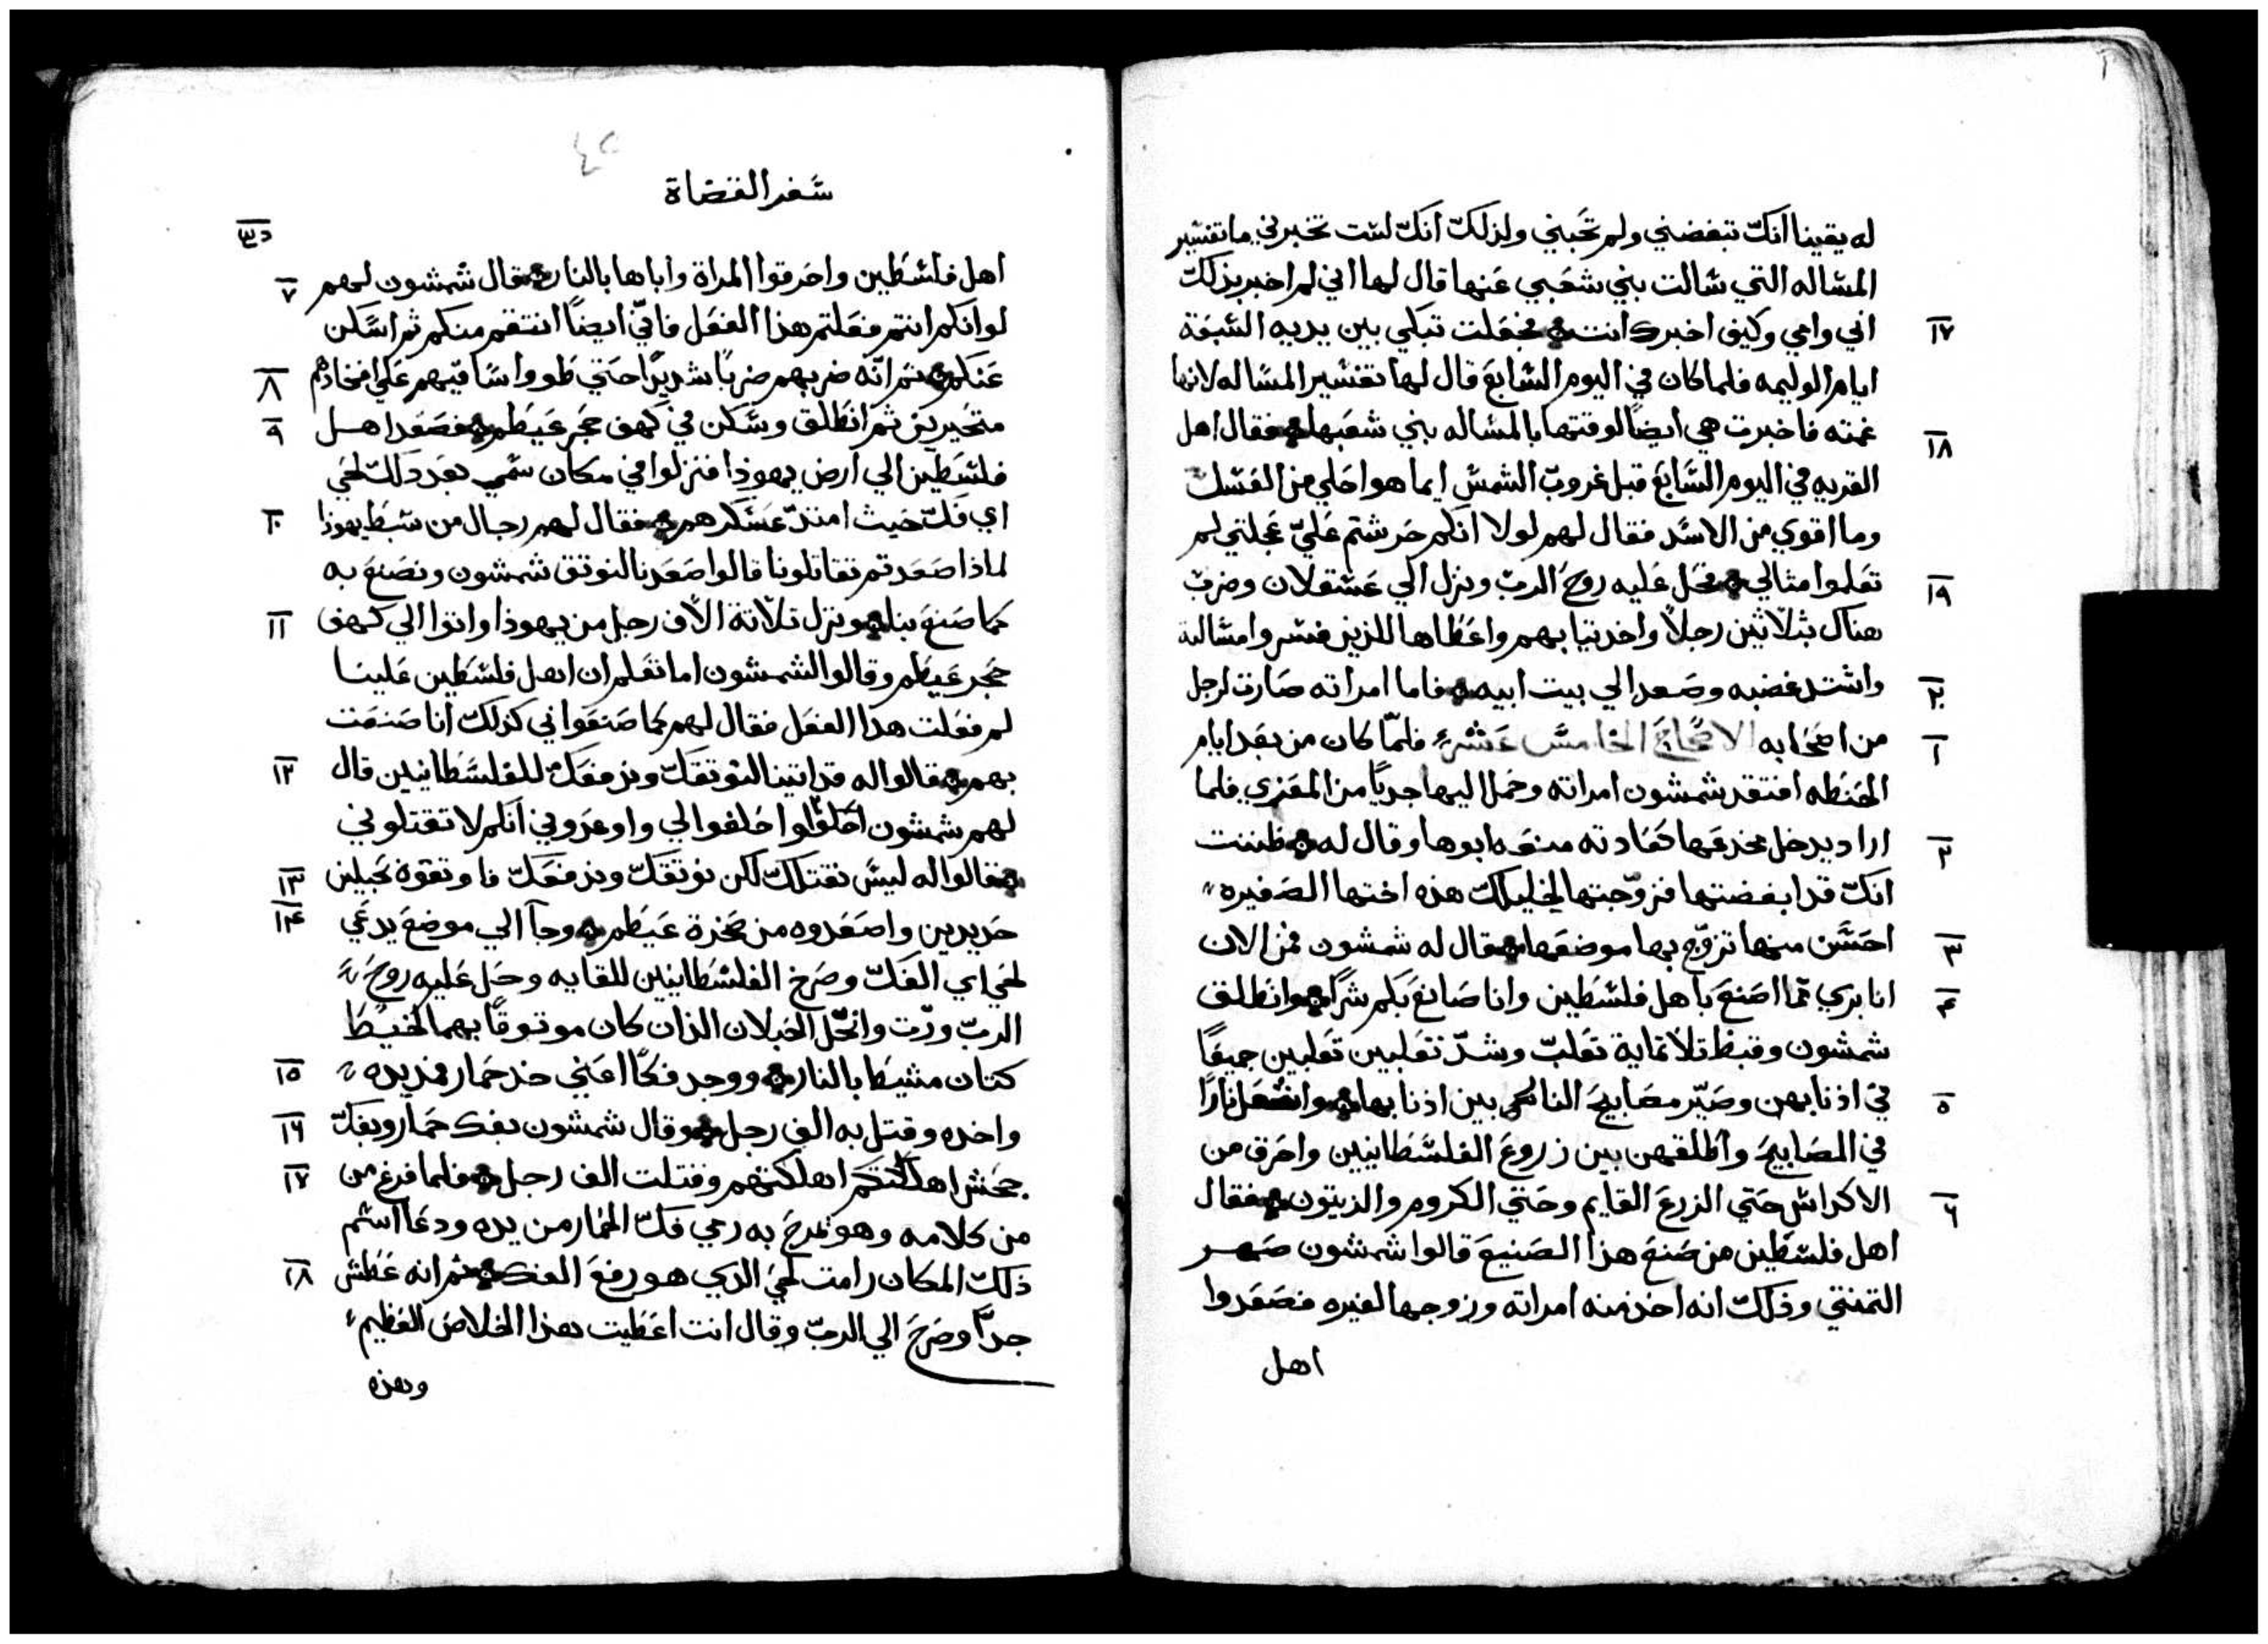 له يقينا انكّ تبغضني ولم تحَبني ولذلكّ انكّ لست تخبرني ما تفسير
المساله التي سالت بني شعَبي عَنها قال لها اني لم اخبر بذلكّ
١٧ ابي وامي وكيف اخبرك انت فجعَلت تبكي بين يديه السبعَة
ايام الوليمه فلما كان في اليوم السابعَ قال لها تفسير المساله لانها
١٨ غمته فاخبرت هي ايضاً لوقتها بالمساله بني شعَبها فقال اهل
القريه في اليوم السَّابعَ قبل غروبّ الشمس ايما هو احَلي من العَسل
وما اقوي من الاسَد فقال لهم لولا انكم حَرشتم عَليّ عَجلتي لم
١٩ تعَلموا مثالي فحَل عَليه روحَ الربّ ونزل الي عَسقلان وضربّ
هناك بثلاثين رجلاً واخد تيابهم واعَطاها للذين فسروا مسالته
٢٠ واشتد غضبه وصَعد الي بيت ابيه فاما امراته صَارت لرجل
١ من اصحَابه الاصحَاحَ الخامسَ عَشر فلمّا كان من بعَد ايام
الحَنطه افتقد شمشون امراته وحَمل اليها جدياً من المعَزي فلما
٢ اراد يدخل مخدعَها كعَادته منعَه ابوها وقال له ظننت
انكّ قد ابغضتها فزوّجتها لخليلكّ هذه اختها الصَغيره
٣ احَسَن منها تزوّج بها موضعَها فقال له شمشون فمن الان
٤ انا بري ممّا اصَنعَ باهل فلسَطين وانا صَانعَ بَكم شرّاً وانطلق
شمشون وقبظ تلاتماية تعَلبّ وشدّ تعَلبين تعَلبين جميعَاً
٥ في اذنابهن وصَيّر مصَابيحَ النار بين اذنابها واشعَل ناراً
في المصَابيحَ واطلقهن بين زروعَ الفلسَطانيين واحَرق من
٦ الاكداس حَتي الزرعَ القايم وحَتي الكروم والزيتون فقال
اهل فلسَطين من صَنعَ هذا الصَنيعَ قالوا شمشون صَهر
التمنتي وذلكّ انه اخذ منه امراته وزوجها لغيره فصَعَدوا
اهل
سَفر القضاة
اهل فلسَطين واحَرقوا المراة واباها بالنار فقال شمشون لهم ٧
لو انكم انتم فعَلتم هذا الفعَل فانيّ ايضاً انتقم منكم ثم اسَكن
عَنكم ثم انّه ضربهم ضرباً شديدّاً حَتي طووا سَاقيّهم عَلي افخادهم ٨
متحَيرين ثم انطَلق وسَكن في كهف حجَر عَيطم فصَعَد اهل ٩
فلسَطين الي ارض يهوذا فنزلوا في مكان سَمي بعَد دلكّ لحَي
اي فَكّ حَيث امتدّ عَسَكرهم فقال لهم رجال من سَبط يهوذا ١٠
لماذا صَعَدتم تقاتلونا قالوا صَعَدنا لنوتق شمشون ونصَنعَ به
كما صَنعَ بنا ونزل تلاتة الاف رجل من يهوذا واتوا الي كهف ١١
حَجر عَيطم وقالوا لشمشون اما تعَلم ان اهل فلسَطين عَلينا
لم فعَلت هدا الفعَل فقال لهم كما صَنعَوا بي كذلكّ انا صَنعَت
بهم فقالوا له قد اتينا لنوتقكّ وندفعَكّ للفلسَطانيين قال ١٢
لهم شمشون احَلفوا لي واوعَدوني انكم لا تقتلوني
فقالوا له ليسَ نقتلكّ لكن نوتقكّ وندفعَكّ فاوتقوه بحَبلين ١٣
حَديدين واصَعَدوه من صَخرة عَيطم وجآ الي موضعَ يدعَي ١٤
لحَي اي الفَكّ وصَرخ الفلسَطانيين للقايه وحَل عَليه روحَ
الربّ ورّت وانحَل الحَبلان الذان كان موتوقاً بهما كخيَط
كتان مشيَطا بالنار ووجد فكاً اعَني خد حَمار فمد يده ١٥
واخده وقتل به الف رجل وقال شمشون بفك حَمار وبفكّ ١٦
جحَش اهلكتهم وقتلت الف رجل فلما فرغ من ١٧
من كلامه وهو يمدحَ به رمي فَكّ الحَمار من يده ودعَا اسَم
ذلكّ المكان رامت لحَي الدي هو رفعَ الفك ثم انه عَطش ١٨
جداً وصَرخَ الي الربّ وقال انت اعَطيت هذا الخلاصَ العَظيم
وهذه